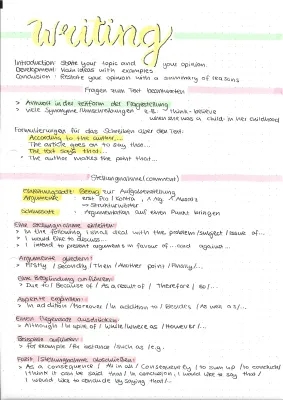 Writing
Introduction: state your topic and your opinion.
Development: your ideas with examples
Conclusion: Restate your opinion with a summary of reasons
Fragen zum Text beantworten
> Antwort in der Zeitform der Fragestellung
> viele Synonyme/Umschreibungen e.g. think - believe
when she was a child - in her childhood
Formulierungen für das Schreiben über den Text:
According to the author...
The article goes on to say that...
The text says that...
The author makes the point that...
Stellungnahme (comment)
Einleitungssatz: Bezug zur Aufgabenstellung
Argumente: erst Pro / Kontra, 1 Arg.
→ Strukturwörter
Schlusssatz: Argumentation auf einen Punkt bringen
Eine Stellungnahme einleiten:
> In the following I shall deal with the problem / subject / issue of...
> I would like to discuss...
> I intend to present arguments in favour of... and against...
Argumente gliedern:
> Firstly / Secondly / Then / Another point / Finally /...
Eine Begründung anführen:
> Due to / Because of / As a result of / Therefore / So /...
Aspekte ergänzen:
> In addition / Moreover / In addition to / Besides / As well as /...
Einen Gegensatz ausdrücken:
> Although / In spite of / While / Whereas / However /...
Beispiele anführen:
> for example / An instance / such as / e.g.
Fazit / Stellungnahme abschließen:
> As a consequence / All in all / Consequently / to sum up / to conclude /
I think it can be said that / In conclusion, I would like to say that /
I would like to conclude by saying that /...